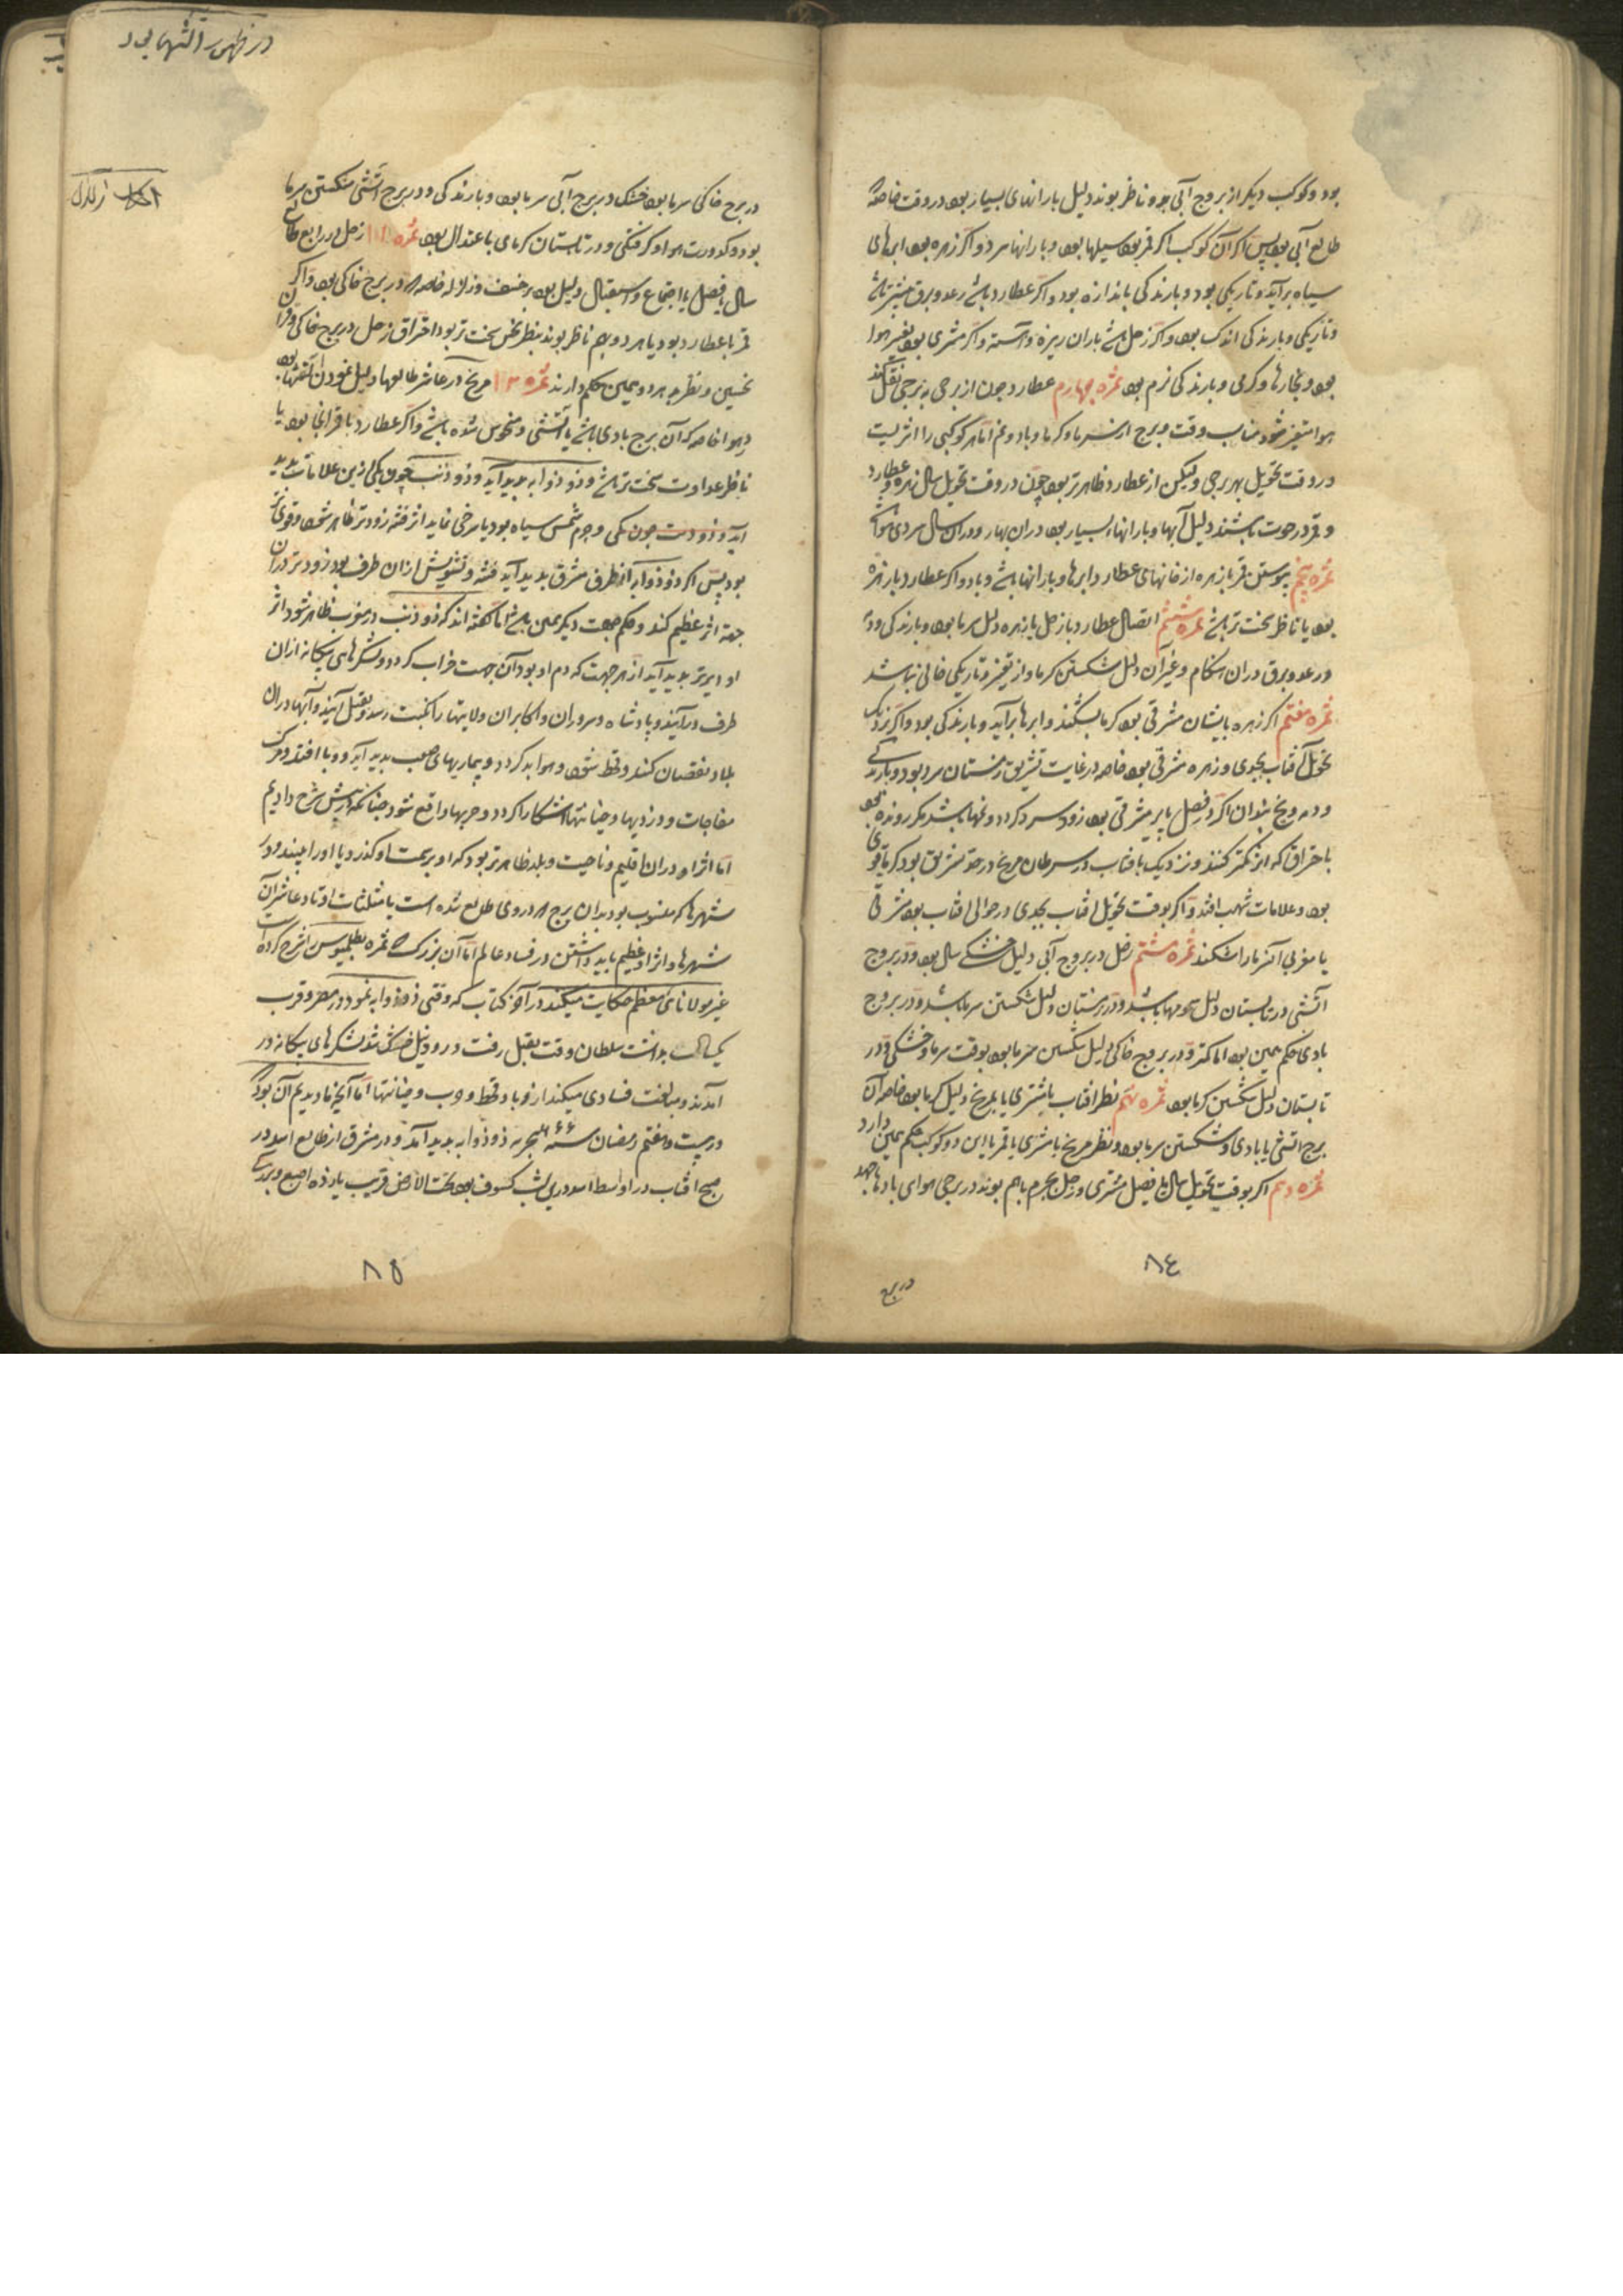 بود و کوکب دیکر از بروج آبی بدو ناظر بوند دلیل بارانهای بسیار بود در وقت خاصه
طالع آبی بود پس اکر آن کوکب اکر قمر بود سیلها بود و بارانها مرد و اکر زهره بود ابرهای
سیاه برآید و تاریکی بود و بارندکی باندازه بود و اکر عطارد باشد رعد و برق بیشتر باشد
و تاریکی و بارندکی اندک بود و اکر زحل باشد باران ریزه و آهسته و اکر مشتری بود تغییر هوا
بود و بخارها و کرمی و بارندکی نرم بود ثمره چهارم عطارد چون از برجی به برجی نقل کند
هوا متغیر شود مناسب وقت و برج از سرما و کرما و باد و نم اما هر کوکبی را اثریست
در وقت تحویل بهر برجی ولیکن از عطارد ظاهرتر بود چون در وقت تحویل سال زهره و عطارد
و قمر در حوت باشند دلیل آبها و بارانهاء بسیار بود در آن بهار و در آن سال سردی هوا
ثمره پنجم پیوستن قمر با زهره از خانهای عطارد ابرها و بارانها باشد و باد و اکر عطارد با زهره
بود یا ناظر سخت تر باشد ثمره ششم اتصال عطارد با زحل یا زهره دلیل سرما بود و بارندکی و دمه
و رعد و برق در آن هنکام و غیر آن دلیل شکستن کرما و از تغیر و تاریکی خالی نباشد
ثمره هفتم اکر زهره بایشان مشرقی بود کرما بشکند و ابرها برآید و بارندکی بود و اکر نزدیک
تحویل آفتاب بجدی و زهره مشرقی بود خاصه در غایت تشریق زمستان سرد بود و بارندکی
و دمه و یخ بندان اکر در فصل پاییز مشرقی بود زود سرد کردد و نمها باشد مکر رونده بود
باحتراق که اثر کمتر کنند و نزدیک بآفتاب در سرطان مریخ در حد تشریق بود کرما قوی
بود و علامات شهب افتد و اکر بوقت تحویل افتاب بجدی در حوالی افتاب بود مشرقی
یا مغربی اکثر ما را شکند ثمره هشتم زحل در بروج آبی دلیل خشکی سال بود و در بروج
آتشی در تابستان دلیل سمومها باشد و در زمستان دلیل شکستن سرما باشد و در بروج
بادی حکم همین بود اما کمتر و در بروج خاکی دلیل شکستن سرما بود بوقت سرما و خشکی و در
تابستان دلیل شکستن کرما بود ثمره نهم نظر افتاب با مشتری یا بمریخ دلیل کرما بود خاصه آن
برج اتشی یا بادی و شکستن سرما بود و نظر مریخ با مشتری یا قمر با این دو کوکب حکم همین دارد
ثمره دهم اکر بوقت تحویل سال یا فصل مشتری و زحل بجرم باهم بوند در برجی هوای بادها جهد
در برج
٨٤
در ظهور آتشها بود
در برج خاکی سرما بود خشک و در برج آبی سرما بود و بارندکی و در برج آتشی شکستن سرما
بود و کدورت هوا و کرفتکی و در تابستان کرمای باعتدال بود ثمره ١١ زحل در رابع طالع
سال یا فصل یا اجتماع و استقبال دلیل بود بر خسف و زلازله خاصه در برج خاکی بود و اکر
قمر با عطارد بود یا هر دو بهم ناظر بوند بنظر نحس سخت تر بود احتراق زحل در برج خاکی و قران
نحسین و نظر به هر دو همین حکم دارند ثمره ١٢ مریخ در عاشر طالعها دلیل نمودن آتشها بود
در هوا خاصه که آن برج بادی باشد یا آتشی و منحوس شده باشد و اکر عطارد با قران آنجا بود یا
ناظر عداوت سخت تر باشد و ذو ذوابه پدید آید و ذو ذنب چون یکی از این علامات پدید
آید و زودست چون یکی و جرم شمس سیاه بود یا سرخی نماید اثر فتنه زودتر ظاهر شود و قوی تر
بود پس اکر ذو ذوابه از طرف مشرق پدید آید فتنه و تشویش از آن طرف بود زودتر در آن
جهة اثر عظیم کند و حکم جهت دیکر همین باشد اما کفته اند که ذو ذنب در مغرب ظاهر شود اثر
او دیرتر پدید آید از هر جهت که دم او بود آن جهت خراب کردد و لشکرهای بیکانه از آن
طرف درآیند و پادشاه و سروران و اکابران ولایتها را نکبت رسد و بقتل آیند و آبها در آن
بلاد نقصان کند و قحط شود و هوا بد کردد و بیماریهای صعب پدید آید و وبا افتد و مرک
مفاجات و دزدیها و خیانتها آشکارا کردد و حربها واقع شود چنانکه در پیش شرح دادیم
اما اثر او در آن اقلیم و ناحیت و بلد ظاهرتر بود که او بر سمت او کذرد یا او را بینند و در
شهرها که منسوب بود بدان برج که در وی طالع شده است یا مثلثات اوتاد عاشر آن
شهرها و اثر او عظیم باید داشتن در فساد عالم اما آن بزرک که ثمره بطلمیوس را شرح کرده است
غیر مولانای معظم حکایت میکند در آخر کتاب که وقتی ذو ذوابه نمود در مصر و قرب
یکسال بداشت سلطان وقت بقتل رفت و رود نیل خشک شد و لشکرهای بیکانه در
آمدند و مبالغت فسادی میکند از وبا و قحط و حرب و خیانتها اما آنچه ما دیدیم آن بود که
در بیست و هفتم رمضان سنه ٦٦٢ هجریه ذو ذوابه پدید آمد و در مشرق از طالع اسد در
صبح افتاب در اواسط اسد در این شب کسوف بود تحت الارض قریب یازده اصبع و بزرکی
احکام زلازل
٨٥